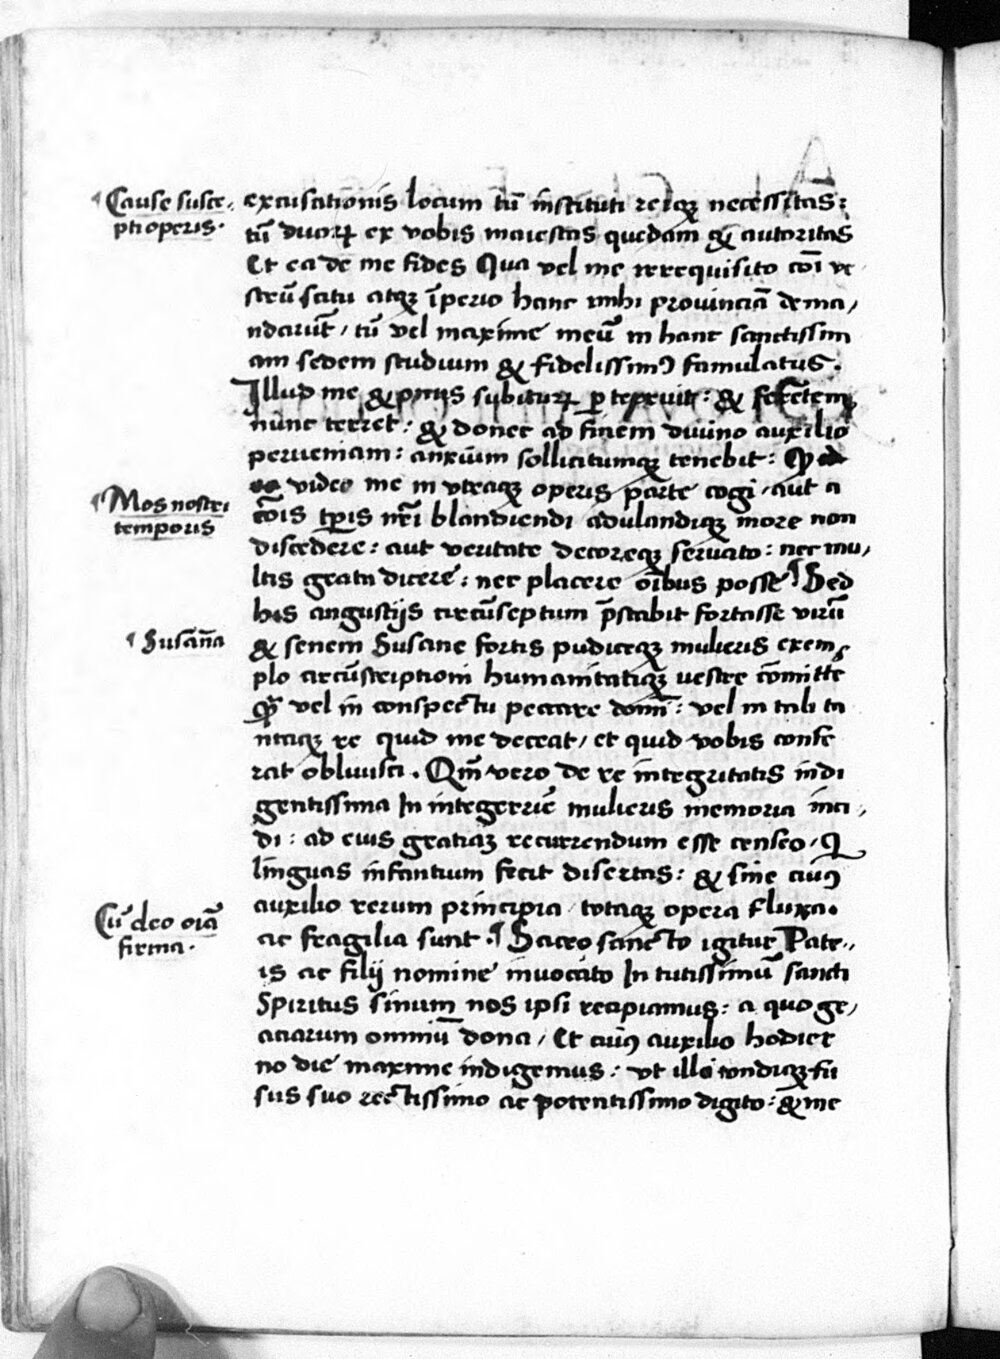 ¶ Cause susce-
pti operis.
excusationis locum tū instituti reiqꝫ necessitas:
tū duoꝝ ex vobis maiestas quedam & autoritas
Et ea de me fides Qua vel me irrequisito cōi ve
strū scitu atqꝫ īperio hanc mihi prouinciā dema/
ndarūt / tū vel maxime meū in hanc sanctissim
am sedem studium & fidelissimꝰ famulatus.
Illud me & prius subituꝝ perterruit: & ferētem
nunc terret: & donec ad finem diuino auxilio
perueniam: anxium sollicitumqꝫ tenebit: Qd
video me in vtraqꝫ operis parte cogi / aut a
¶ Mos nostri
temporis
cōis tp̄is nr̄i blandiendi adulandiqꝫ more non
discedere: aut veritate decoreqꝫ seruato: nec mu/
ltis grata dicere: nec placere oībus posse ¶ Sed
his angustijs circūseptum p̄stabit fortasse virū
¶ Susāna
& senem Susane fortis pudiceqꝫ mulieris exem
plo circūscriptioni humanitatiqꝫ vestre cōmitte
vel in conspectu peccare domī: vel in tali ta
ntaqꝫ re quid me deceat / et quid vobis confe
rat obliuisci. Qm̄ vero de re integritatis indi
gentissima In integerrīe mulieris memoria inci/
di: ad eius gratiā recurrendum esse censeo / Q
linguas infantium fecit disertas: & sine cuiꝰ
auxilio rerum principia / totaqꝫ opera fluxa.
¶ Cū deo oīa
firma.
ac fragilia sunt. ¶ Sacro sancto igitur Patr-
is ac filij nomine inuocato In tutissimū sancti
Spiritus sinum nos ipsi recipiamus: a quo gr/
atiarum omniū dona / Et cuiꝰ auxilio hodier
no die maxime indigemus: vt illo vndiqꝫ fu
sus suo rectissimo ac potentissimo digito: & me